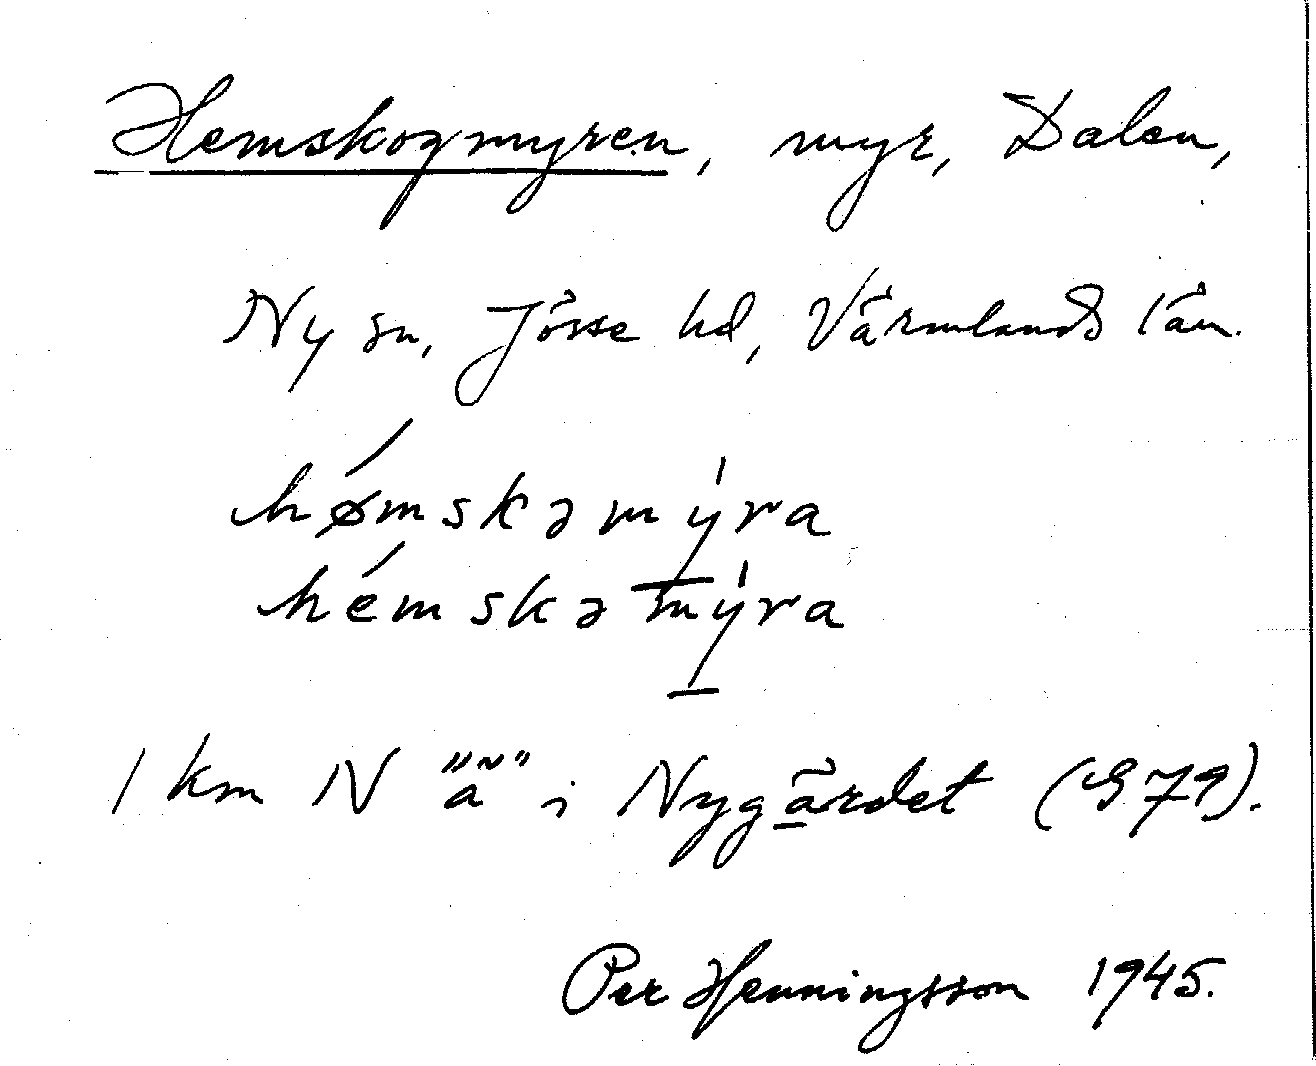 Hemskogmyren, myr, Dalen,
Ny sn, Jösse hd, Värmlands län.
hǿmskəmýra
hémskəmýra
1 km N "ä" i Nygärdet (G79).
Per Henningsson 1945.